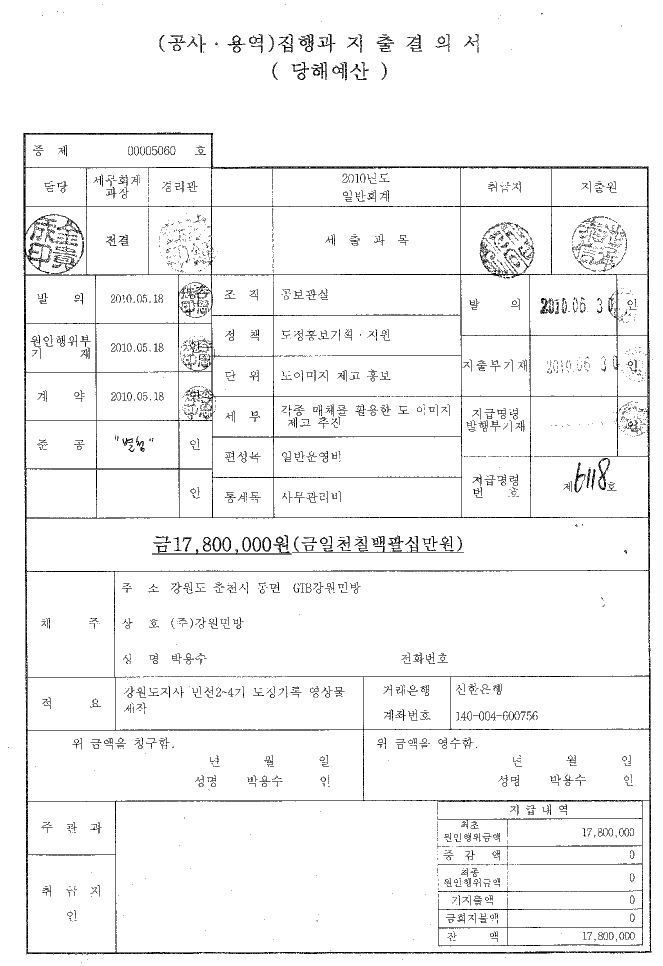 (공사·용역)집행과 지출결의서
( 당해예산 )
증 제 00005060 호
담당 세무회계과장 경리관 2010년도 일반회계 취급자 지출원
전결 세출과목
발 의 2010.05.18 조 직 공보관실 발 의 2010.06 30 인
원인행위부기 재 2010.05.18 정 책 도정홍보기획·지원 지출부기재 2010.06 30 인
계 약 2010.05.18 단 위 도이미지 제고 홍보
세 부 각종 매체를 활용한 도 이미지 제고 추진 지급명령 발행부기재 인
준 공 "별첨" 인 편성목 일반운영비
인 통계목 사무관리비 지급명령 번 호 제6118호
금17,800,000원(금일천칠백팔십만원)
채 주
주 소 강원도 춘천시 동면 GTB강원민방
상 호 (주)강원민방
성 명 박용수 전화번호
적 요 강원도지사 민선2~4기 도정기록 영상물 제작
거래은행 신한은행
계좌번호 140-004-600756
위 금액을 청구함. 위 금액을 영수함.
년 월 일 년 월 일
성명 박용수 인 성명 박용수 인
주 관 과
취 급 자
인
지 급 내 역
최초 원인행위금액 17,800,000
증 감 액 0
최종 원인행위금액 0
기지출액 0
금회지불액 0
잔 액 17,800,000